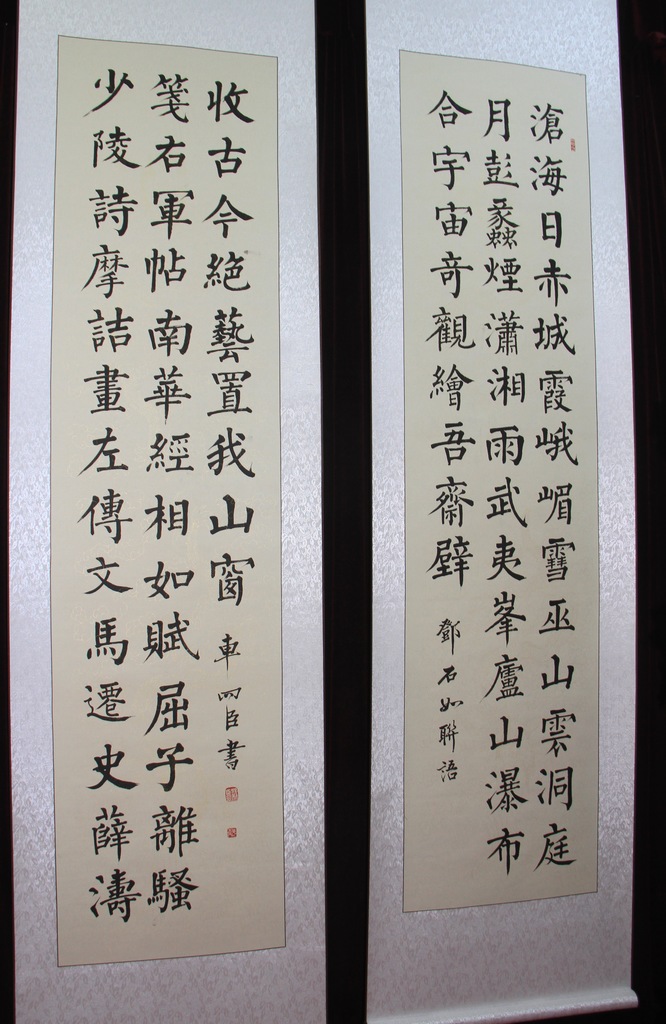 滄海日赤城霞峨嵋雪巫山雲洞庭
月彭蠡煙瀟湘雨武夷峯廬山瀑布
合宇宙奇觀繪吾齋壁
鄧石如聯語
少陵詩摩詰畫左傳文馬遷史薛濤
箋右軍帖南華經相如賦屈子離騷
收古今絶藝置我山窗
車四臣書